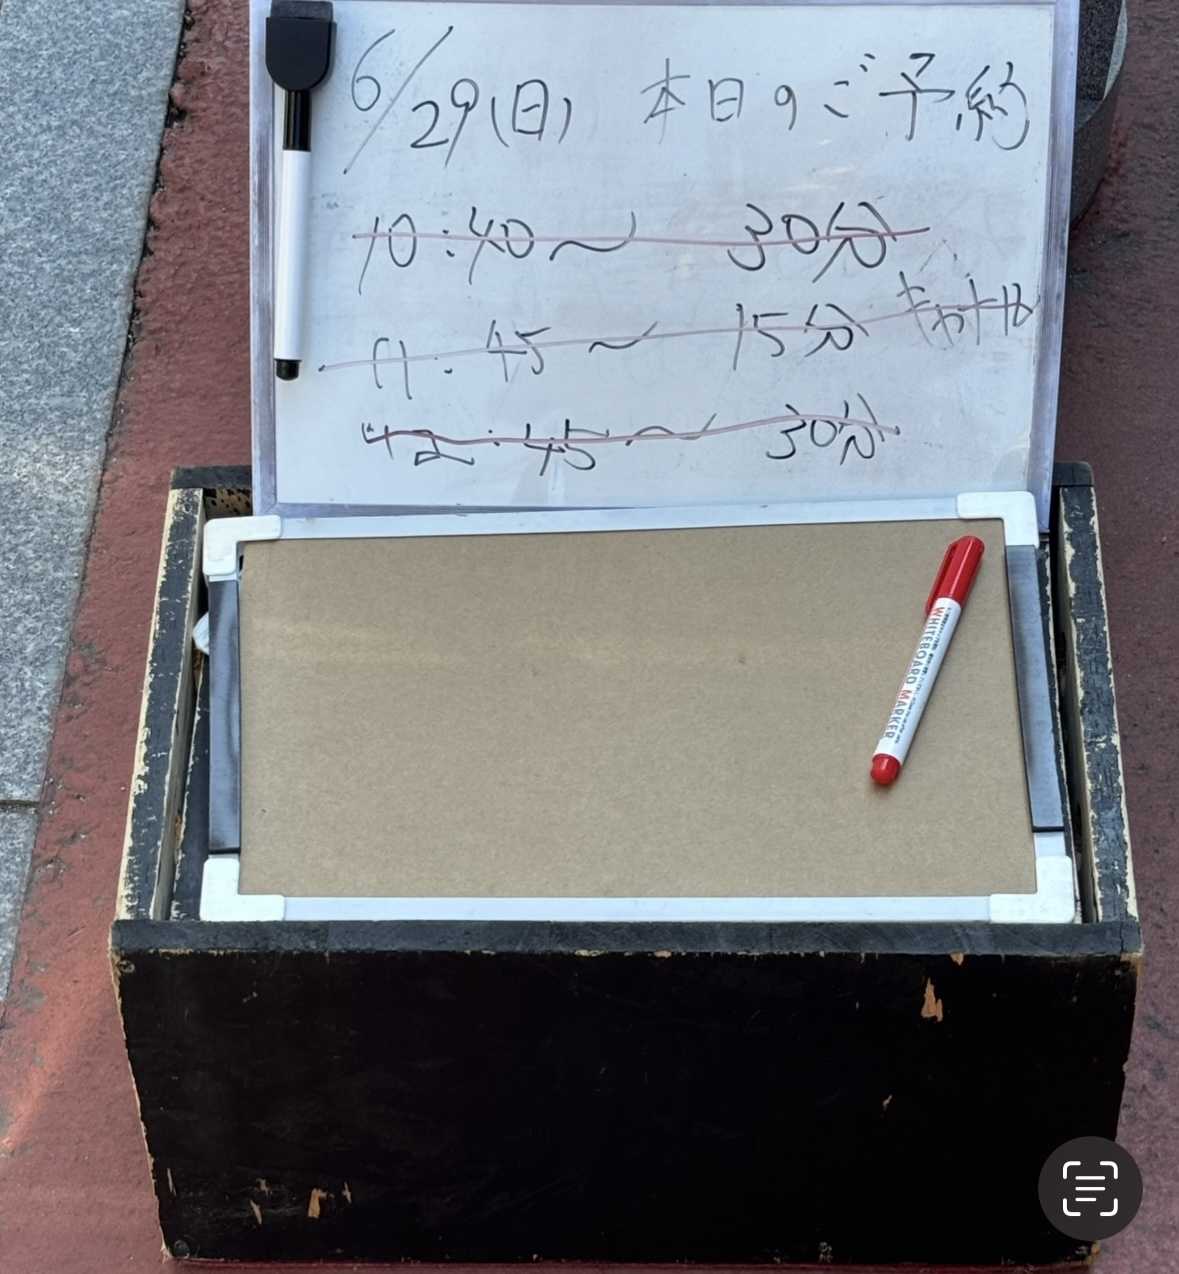 6/29(日) 本日のご予約
10:40〜 30分
11:45〜 15分
12:45〜 30分
WHITEBOARD MARKER